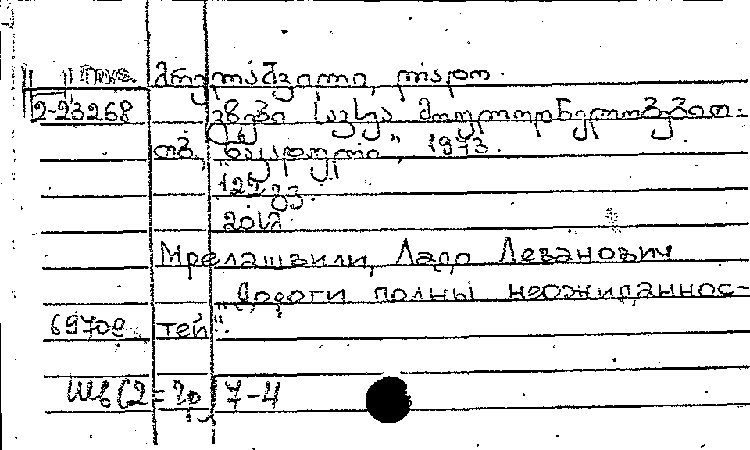 მრელაშვილი, ლადო.
2-23268 გზები სავსეა მოულოდნელობებით.
თბ., "ნაკადული", 1973.
127 გვ.
Мрелашвили, Ладо Леванович
"Дороги полны неожиданнос-
69709 тей".
Шб(2=Гр)7-4